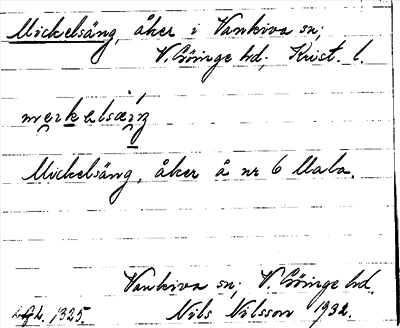 Mickelsäng, åker i Vankiva sn;
V. Göinge hd; Krist. l.
Mickelsäng, åker å nr 6 Mala.
Vankiva sn; V. Göinge hd.
1325. Nils Nilsson 1932.